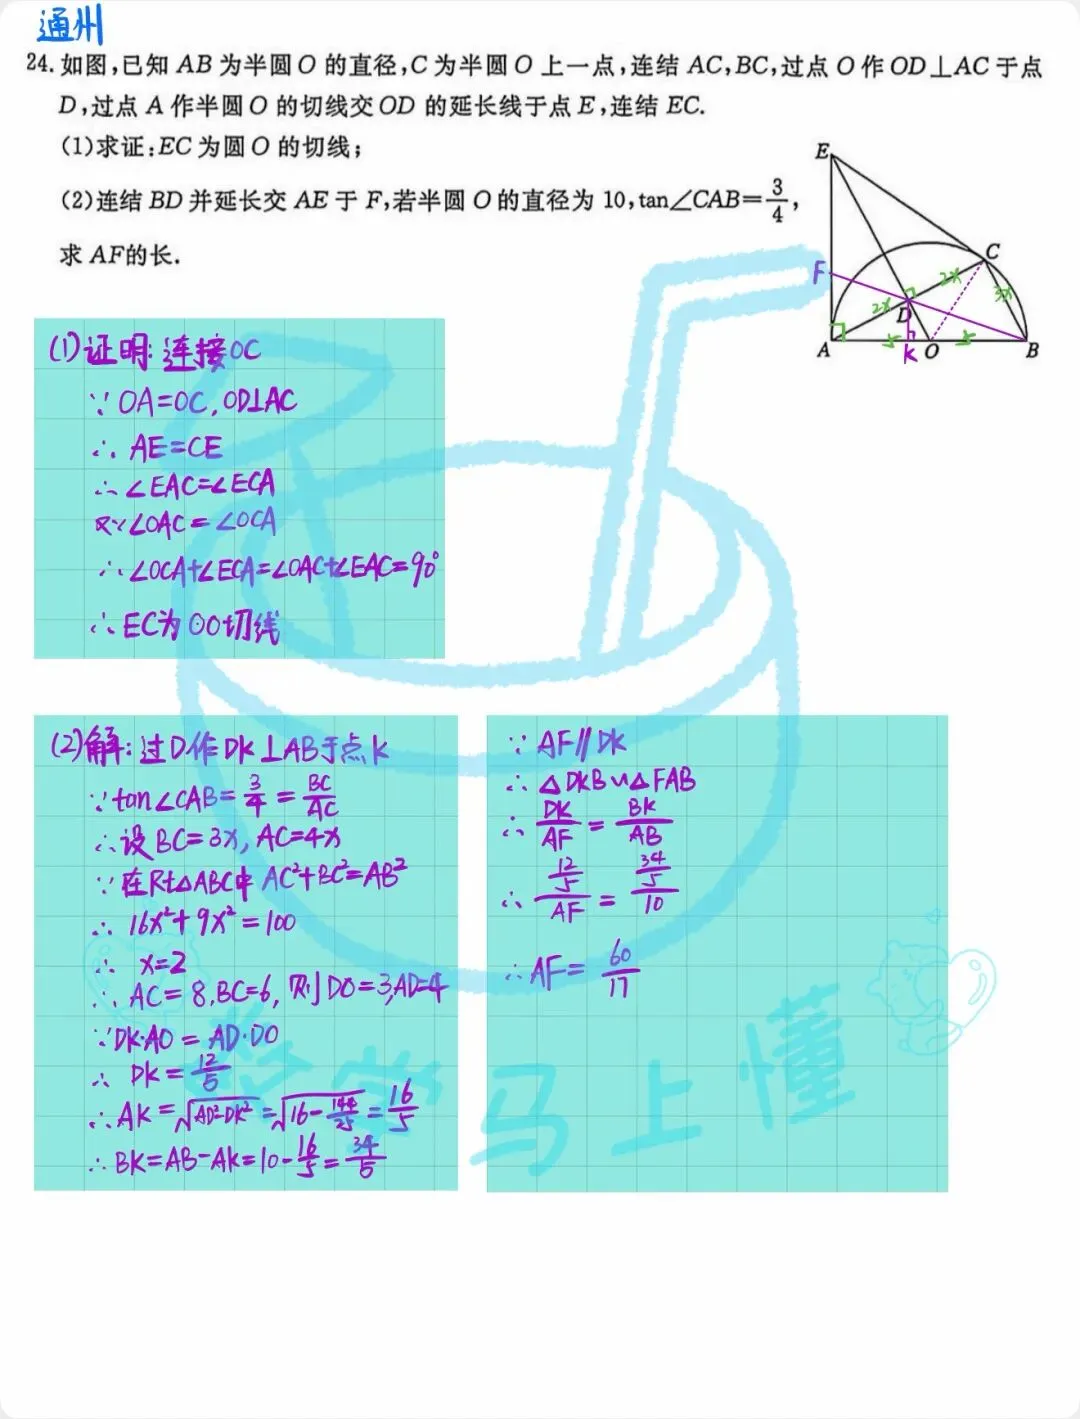 通州
24. 如图,已知 AB 为半圆 O 的直径,C 为半圆 O 上一点,连结 AC,BC,过点 O 作 OD⊥AC 于点
D,过点 A 作半圆 O 的切线交 OD 的延长线于点 E,连结 EC.
(1)求证:EC 为圆 O 的切线;
(2)连结 BD 并延长交 AE 于 F,若半圆 O 的直径为 10,tan∠CAB=3/4,
求 AF的长.
E
C
F
2x
3x
2x
D
A
5
K
O
5
B
(1)证明:连接OC
∵OA=OC,OD⊥AC
∴AE=CE
∴∠EAC=∠ECA
又∵∠OAC=∠OCA
∴∠OCA+∠ECA=∠OAC+∠EAC=90°
∴EC为⊙O切线
(2)解:过D作DK⊥AB于点K
∵tan∠CAB=3/4=BC/AC
∴设BC=3x,AC=4x
∵在Rt△ABC中 AC²+BC²=AB²
∴16x²+9x²=100
∴x=2
∴AC=8,BC=6,则DO=3,AD=4
∵DK·AO=AD·DO
∴DK=12/5
∴AK=√(AD²-DK²)=√(16-144/25)=16/5
∴BK=AB-AK=10-16/5=34/5
∵AF∥DK
∴△DKB∽△FAB
∴DK/AF=BK/AB
∴(12/5)/AF=(34/5)/10
∴AF=60/17
数学马上懂